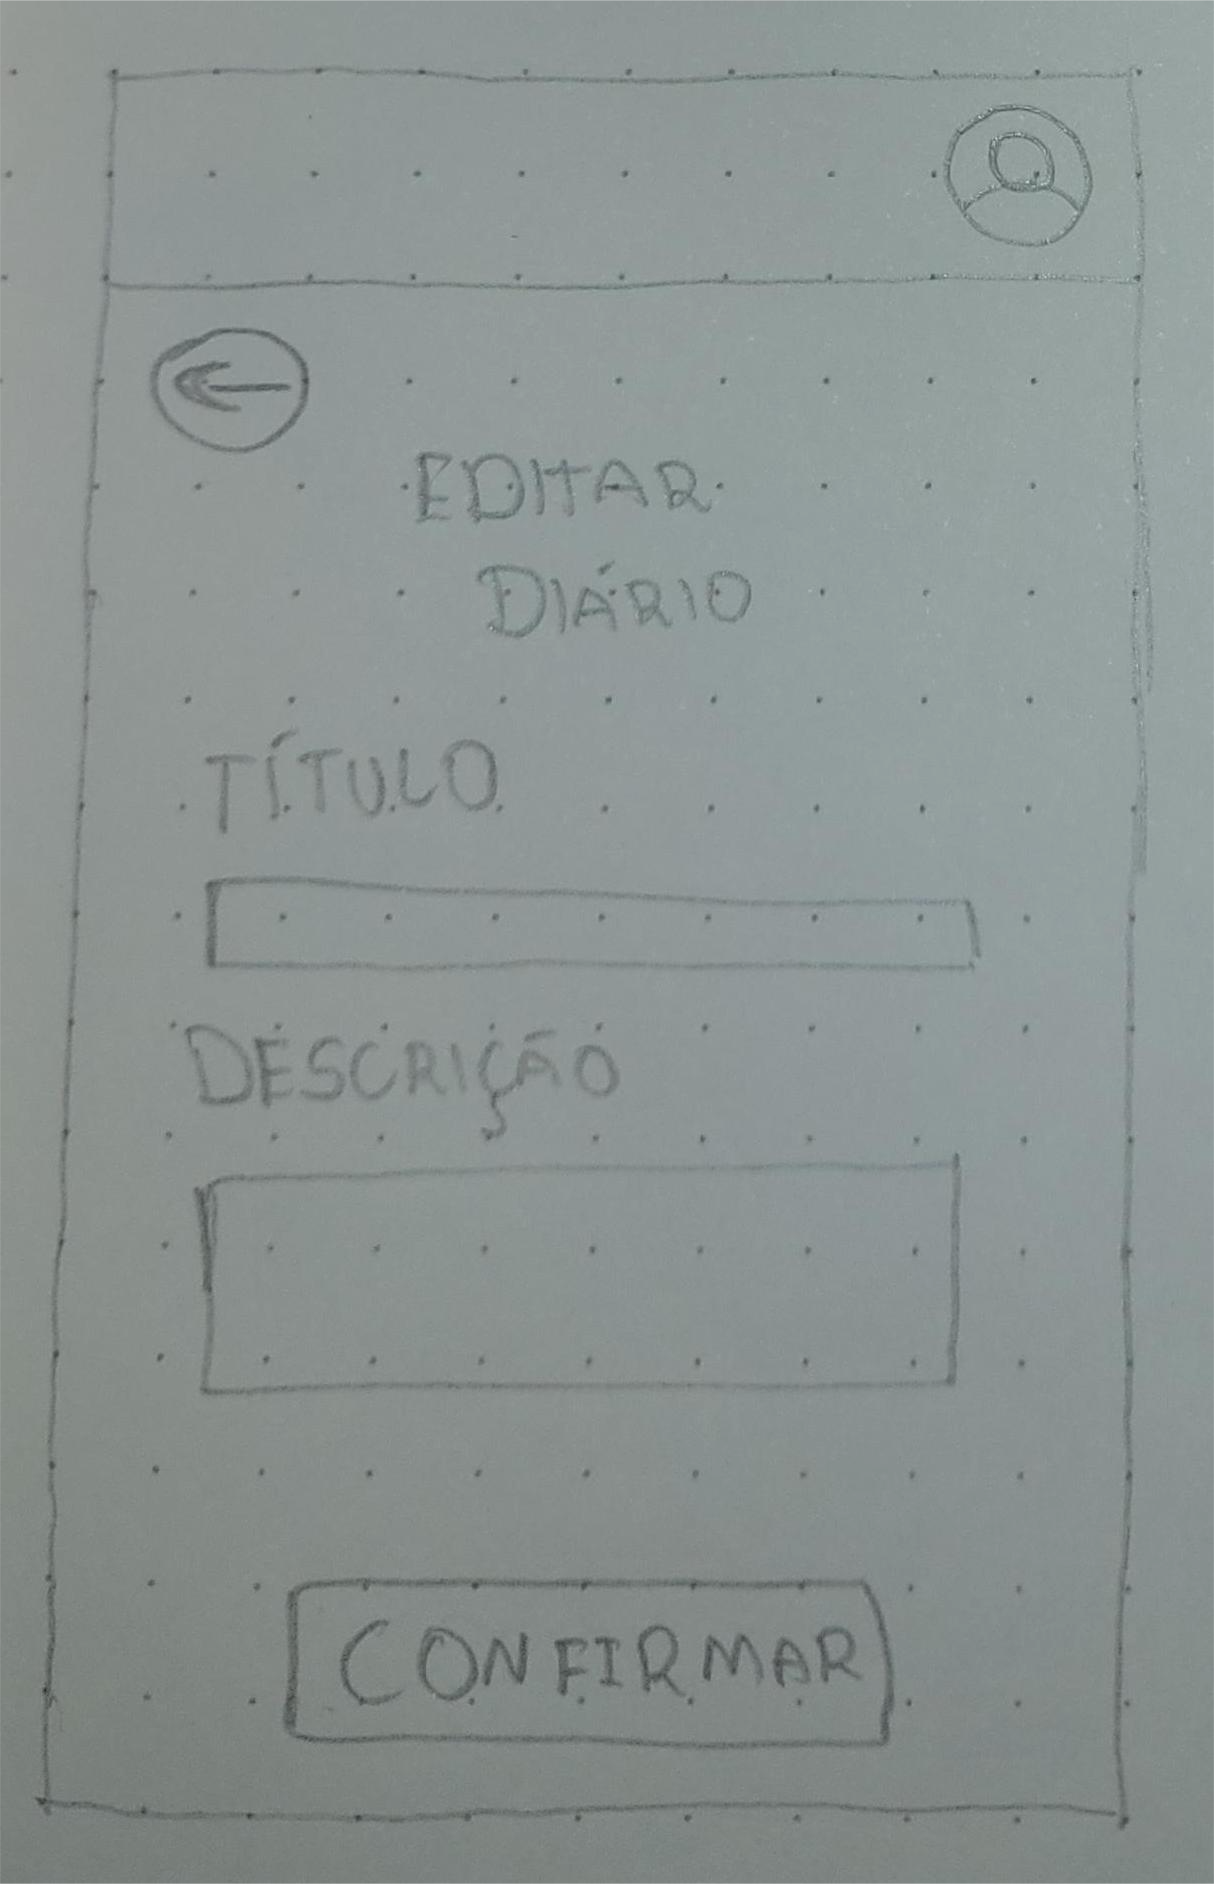 EDITAR
DIÁRIO
TÍTULO
DESCRIÇÃO
CONFIRMAR